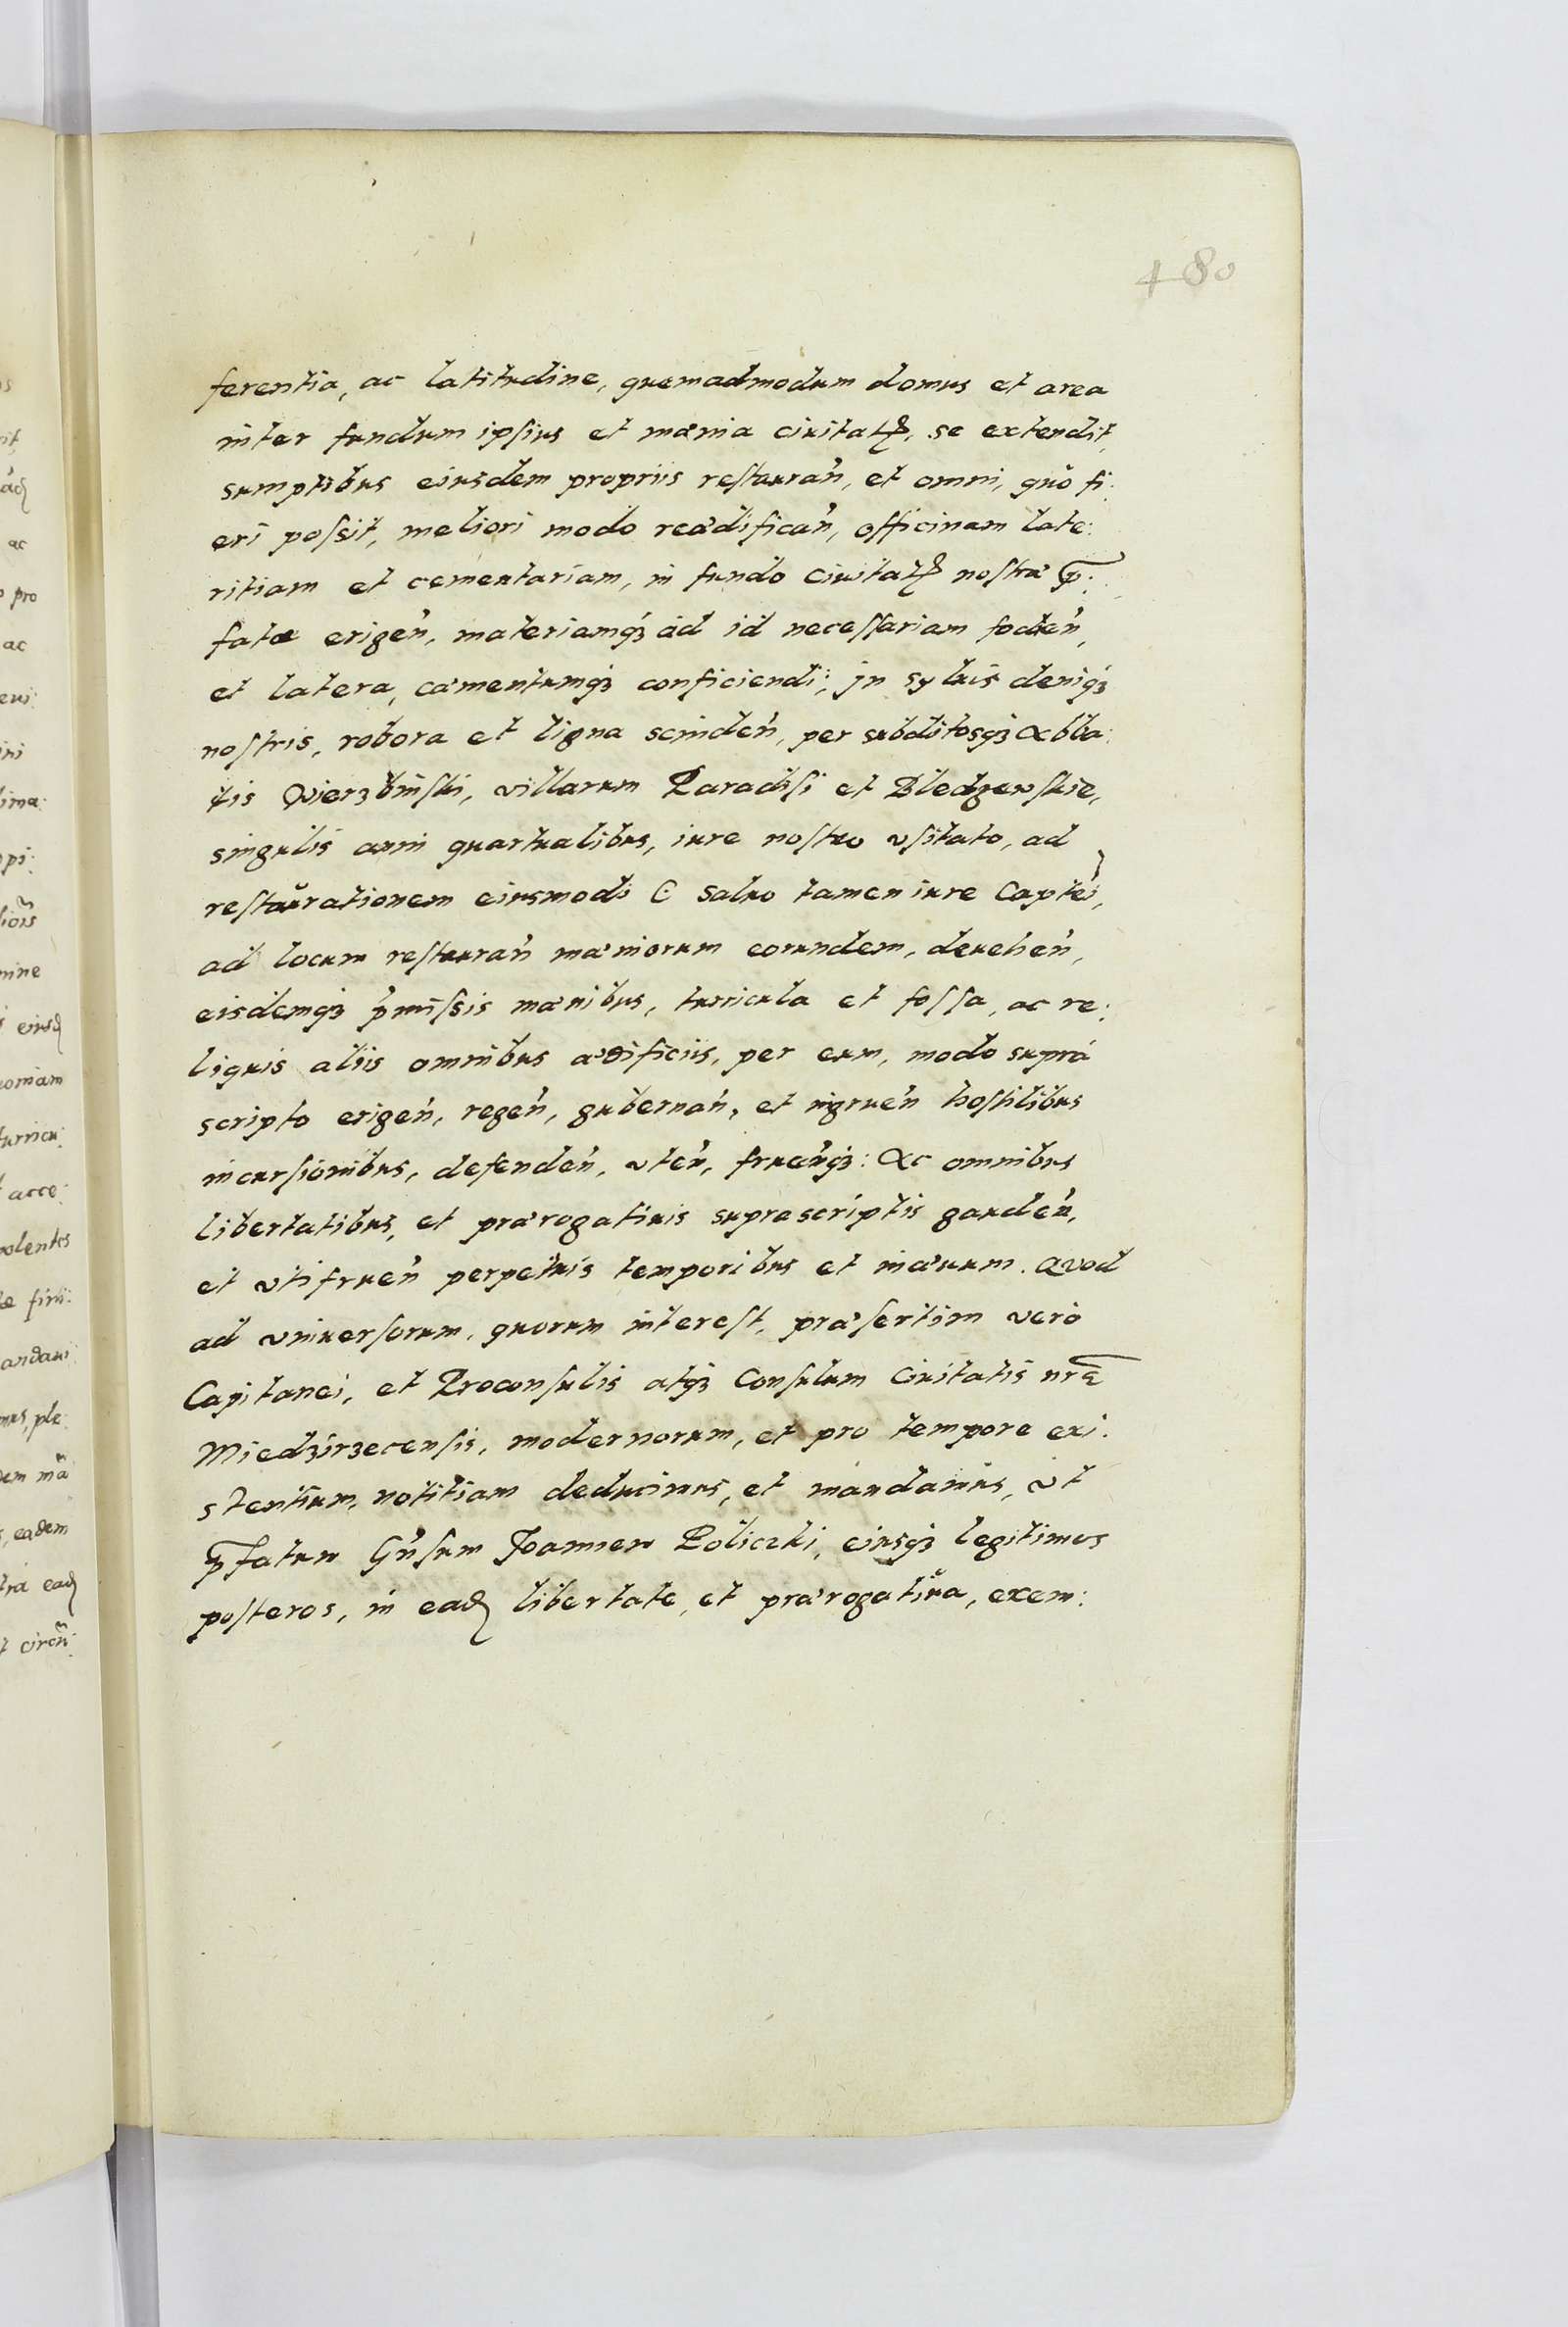 480
ferentia, ac latitudine, quemadmodum domus et area
inter fundum ipsius et mænia ciuitatꝭ, se extendit,
sumptibus eiusdem propriis restaurań, et omni, quo fi:
eri possit, meliori modo reædificań, officinam late:
ritiam et cementariam, in fundo Ciuitatꝭ nostræ p̄:
fatæ erigeń, materiamqꝫ ad id necessariam fodień,
et latera, cæmentumqꝫ conficiendi; jn syluis deniqꝫ
nostris, robora et ligna scindeń, per subditosqꝫ Abba:
tis Wierzbinski, villarum Paradisi et Bledzewskie,
singulis anni quartualibus, iure nostro vsitato, ad
restaurationem eiusmodi (: saluo tamen iure Captei,
ad locum restaurań mæniorum eorundem, deueheń,
eisdemqꝫ pŕmissis mænibus, turricula et fossa, ac re:
liquis aliis omnibus ædificiis, per eum, modo suprà
scripto erigeń, regeń, gubernań, et ingrueń hostilibus
incursionibus, defendeń, vteń, frueńqꝫ: Ac omnibus
libertatibus, et prærogatiuis suprascriptis gaudeń,
et vtifrueń perpetuis temporibus et inæuum. Quod
ad vniuersorum, quorum interest, præsertim verò
Capitanei, et Proconsulis atqꝫ Consulum Ciuitatis nrǣ
Miedzirzecensis, modernorum, et pro tempore exi:
stentium, notitiam deducimus, et mandamus, vt
p̄fatum Gńsum Joannem Policzki, eiusqꝫ legitimos
posteros, in eadꝫ libertate, et prærogatiua, exem: